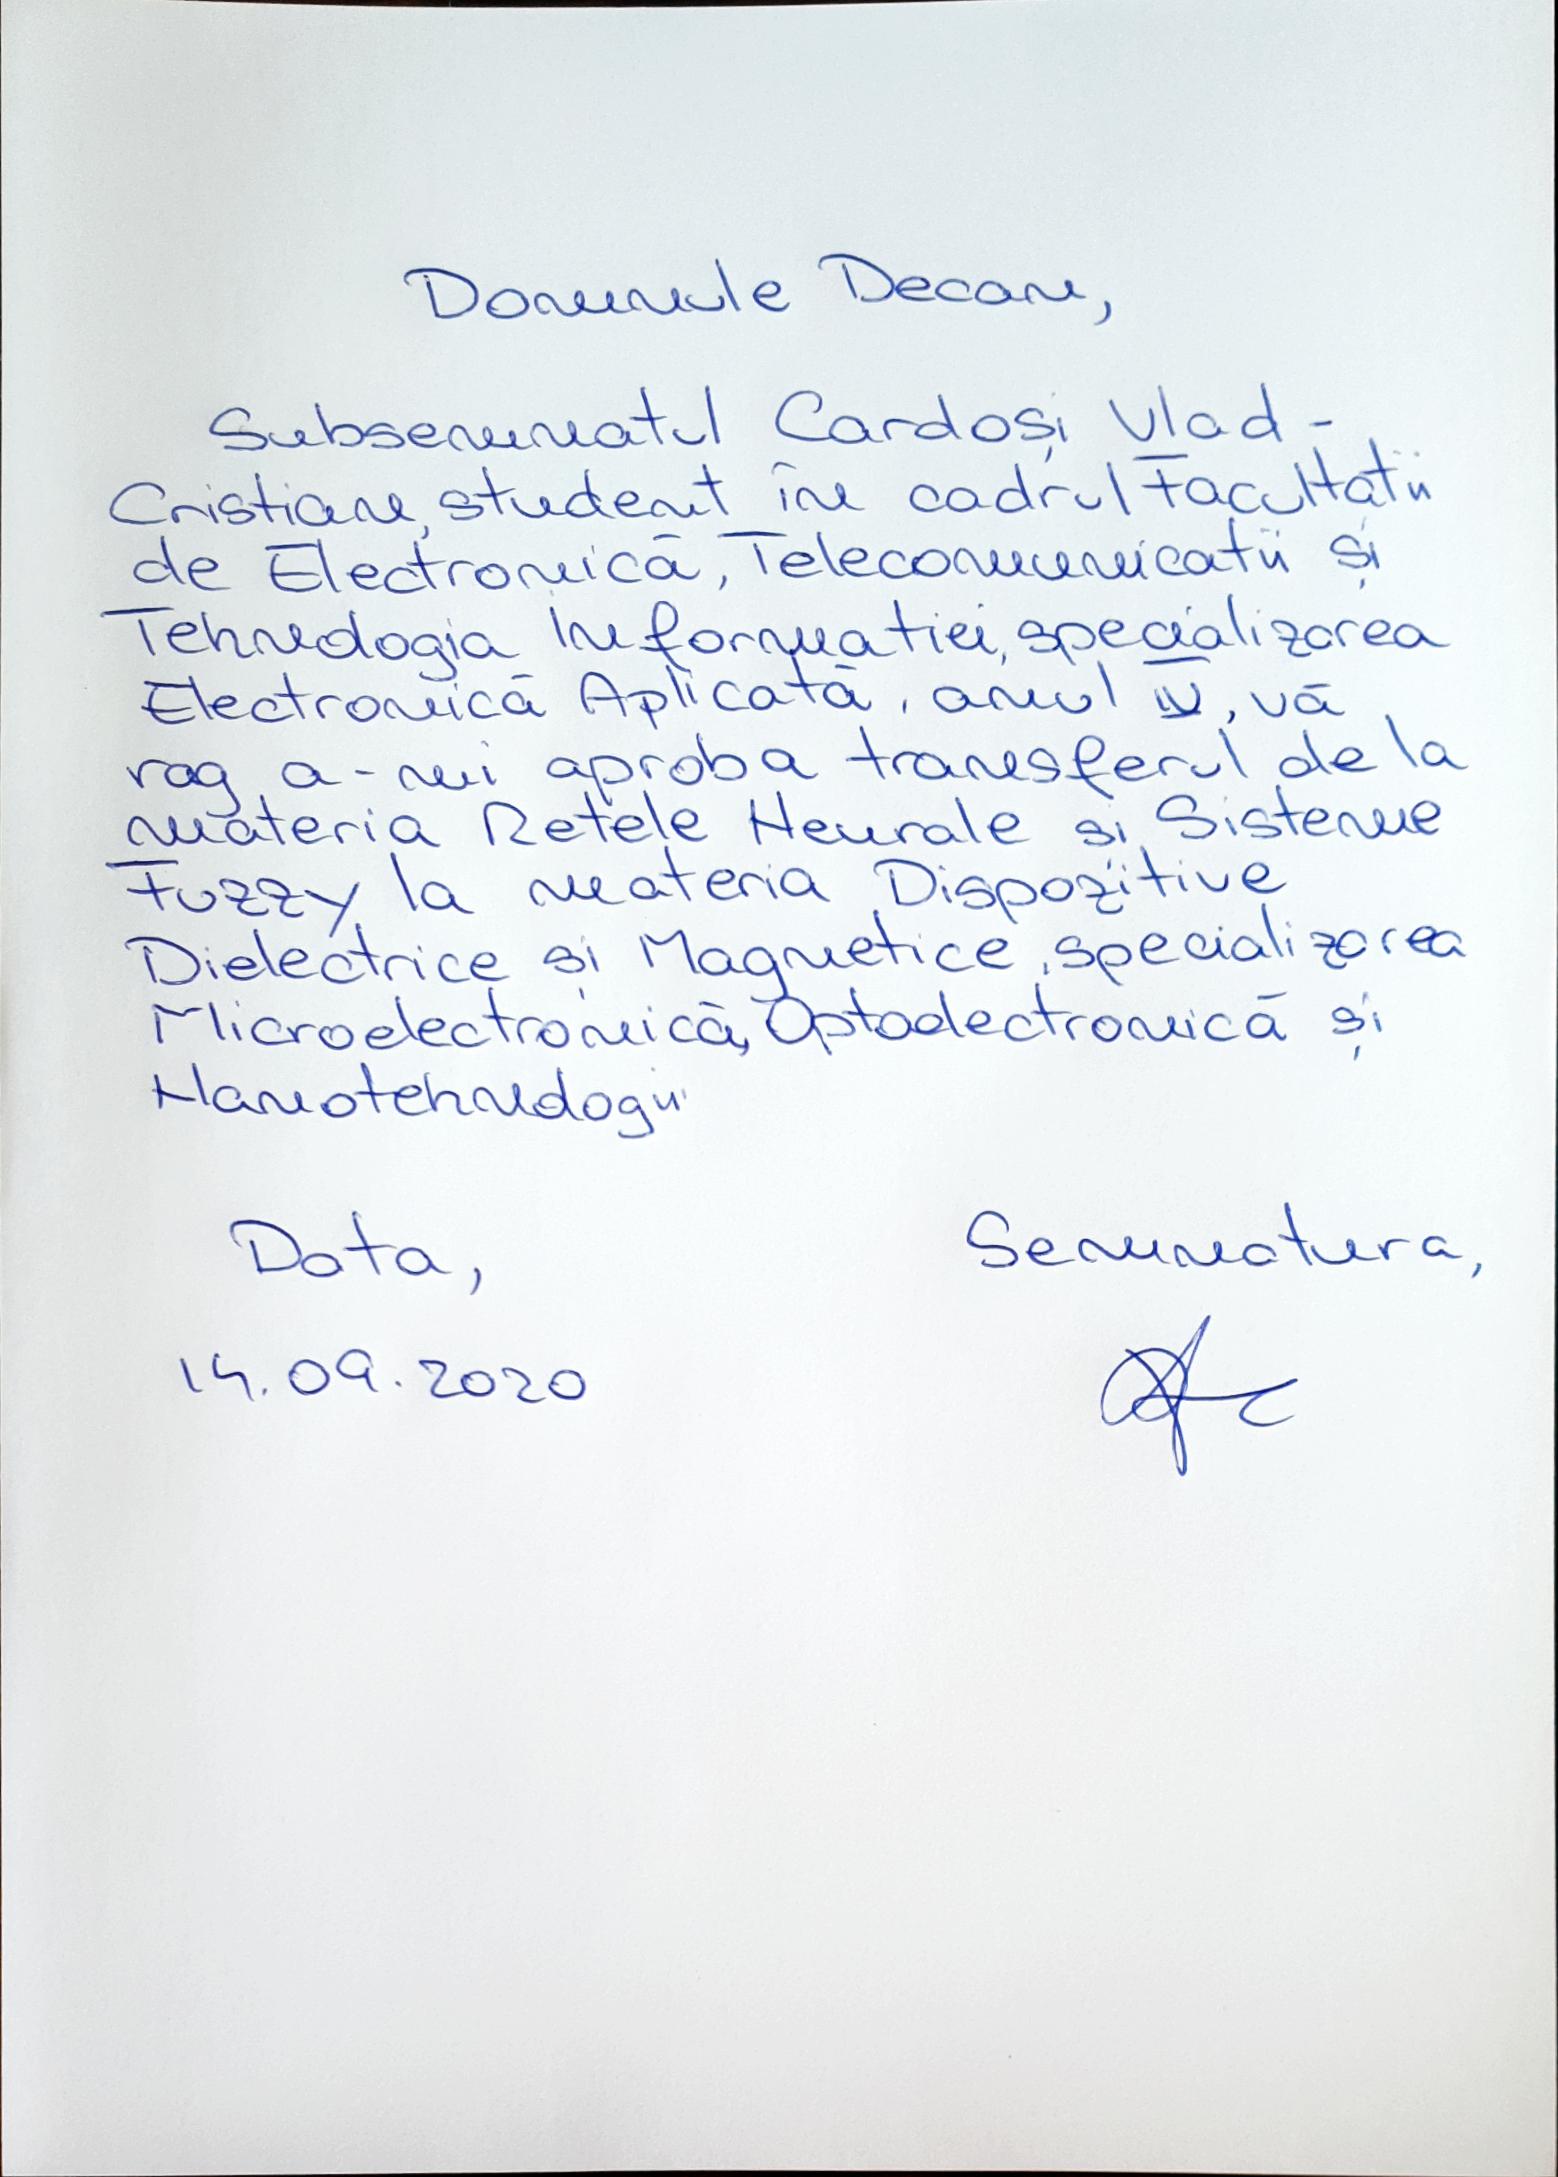 Domnule Decan,
Subsemnatul Cardoși Vlad-
Cristian, student în cadrul Facultății
de Electronică, Telecomunicatii și
Tehnologia Informatiei, specializarea
Electronică Aplicată, anul IV, vă
rog a-mi aproba transferul de la
materia Retele Neurale și Sisteme
Fuzzy la materia Dispozitive
Dielectrice și Magnetice, specializarea
Microelectronică, Optoelectronică și
Nanotehnologii
Data, Semnatura,
14.09.2020